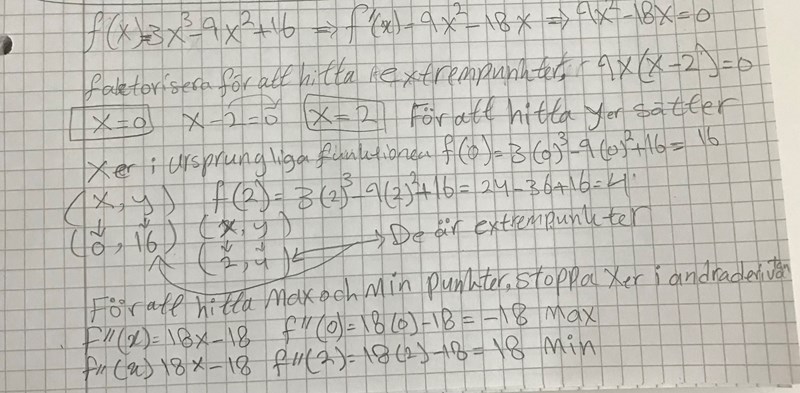 f(x)=3x³-9x²+16 ⇒ f'(x)=9x²-18x ⇒ 9x²-18x=0
faktorisera för att hitta extrempunkter, 9x(x-2)=0
x=0 x-2=0 x=2 För att hitta yer sätter
xer i ursprungliga funktionen f(0)=3(0)³-9(0)²+16= 16
(x,y) f(2)=3(2)³-9(2)²+16=24-36+16=4
(0,16) (x,y)
(2,4) De är extrempunkter
För att hitta Max och Min punkter, stoppa xer i andraderivatan
f''(x)=18x-18 f''(0)=18(0)-18=-18 Max
f''(x) 18x-18 f''(2)=18(2)-18=18 Min